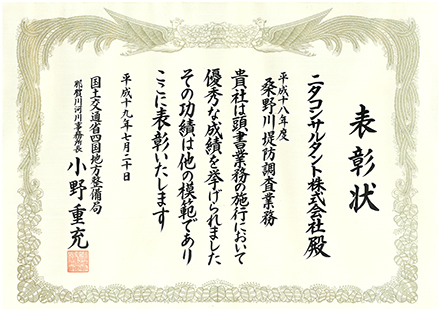 表彰状
ニタコンサルタント株式会社殿
平成十八年度
桑野川堤防調査業務
貴社は頭書業務の施行において
優秀な成績を挙げられました
その功績は他の模範であり
ここに表彰いたします
平成十九年七月二十日
国土交通省四国地方整備局
那賀川河川事務所長 小野重充